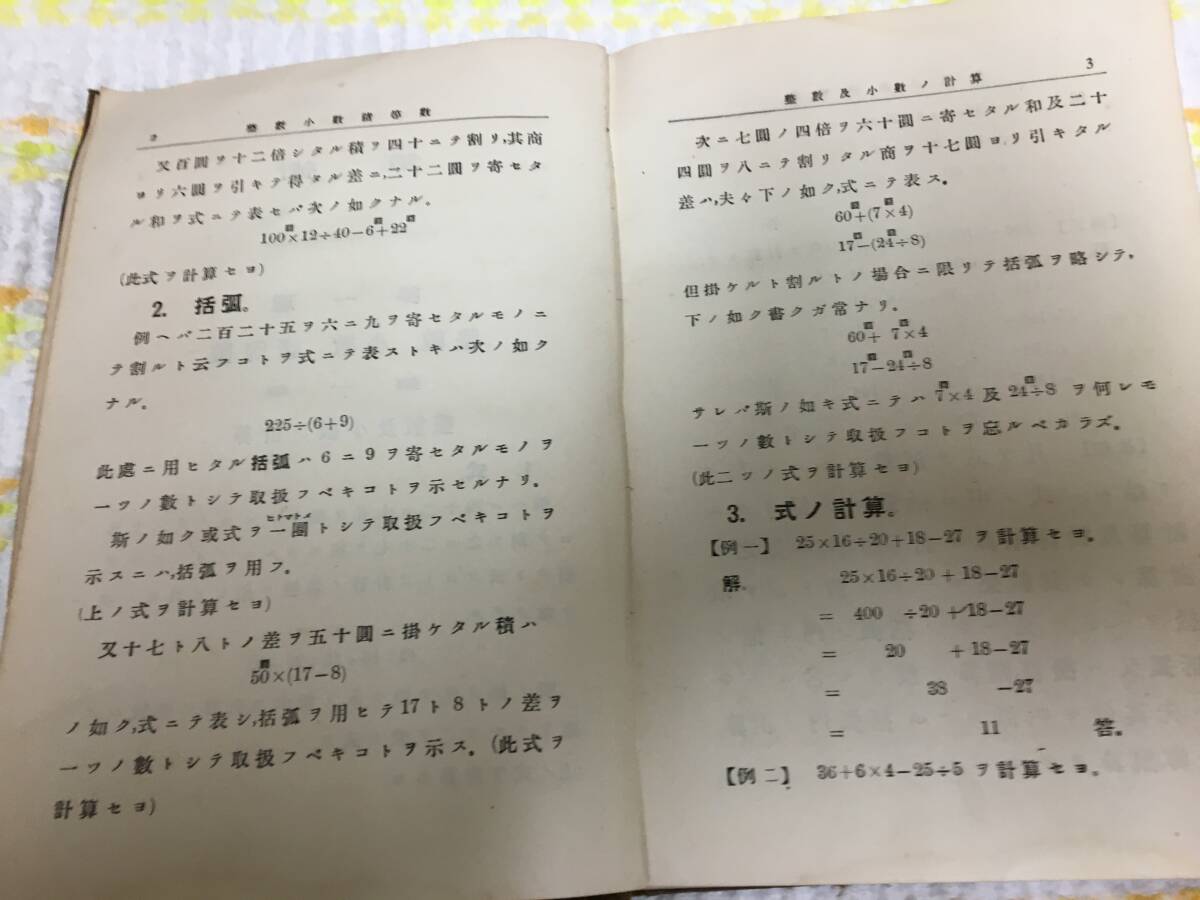 2 整數小數諸等數
又百圓ヲ十二倍シタル積ヲ四十ニテ割リ,其商
ヨリ六圓ヲ引キテ得タル差ニ,二十二圓ヲ寄セタ
ル和ヲ式ニテ表セバ次ノ如クナル。
100圓×12÷40-6圓+22圓
(此式ヲ計算セヨ)
2. 括弧。
例ヘバ二百二十五ヲ六ニ九ヲ寄セタルモノニ
テ割ルト云フコトヲ式ニテ表ストキハ次ノ如ク
ナル。
225÷(6+9)
此處ニ用ヒタル括弧ハ6ニ9ヲ寄セタルモノヲ
一ツノ數トシテ取扱フベキコトヲ示セルナリ。
ヒトマトメ
斯ノ如ク或式ヲ一團トシテ取扱フベキコトヲ
示スニハ,括弧ヲ用フ。
(上ノ式ヲ計算セヨ)
又十七ト八トノ差ヲ五十圓ニ掛ケタル積ハ
50圓×(17-8)
ノ如ク,式ニテ表シ,括弧ヲ用ヒテ17ト8トノ差ヲ
一ツノ數トシテ取扱フベキコトヲ示ス。(此式ヲ
計算セヨ)
整數及小數ノ計算 3
次ニ七圓ノ四倍ヲ六十圓ニ寄セタル和及二十
四圓ヲ八ニテ割リタル商ヲ十七圓ヨリ引キタル
差ハ,夫々下ノ如ク,式ニテ表ス。
60圓+(7圓×4)
17圓-(24圓÷8)
但掛ケルト割ルトノ場合ニ限リテ括弧ヲ略シテ,
下ノ如ク書クガ常ナリ。
60圓+ 7圓×4
17圓-24圓÷8
サレバ斯ノ如キ式ニテハ 7圓×4 及 24圓÷8 ヲ何レモ
一ツノ數トシテ取扱フコトヲ忘ルベカラズ。
(此二ツノ式ヲ計算セヨ)
3. 式ノ計算。
【例一】 25×16÷20+18-27 ヲ計算セヨ。
解. 25×16÷20+18-27
= 400 ÷20+18-27
= 20 +18-27
= 38 -27
= 11 答。
【例二】 36+6×4-25÷5 ヲ計算セヨ。